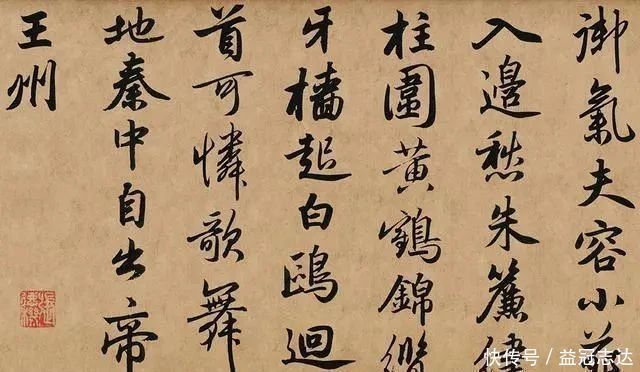 御氣夫容小苑
入邊愁朱簾繡
柱圍黄鶴錦纜
牙檣起白鷗迴
首可憐歌舞
地秦中自古帝
王州
快传号／益冠志达